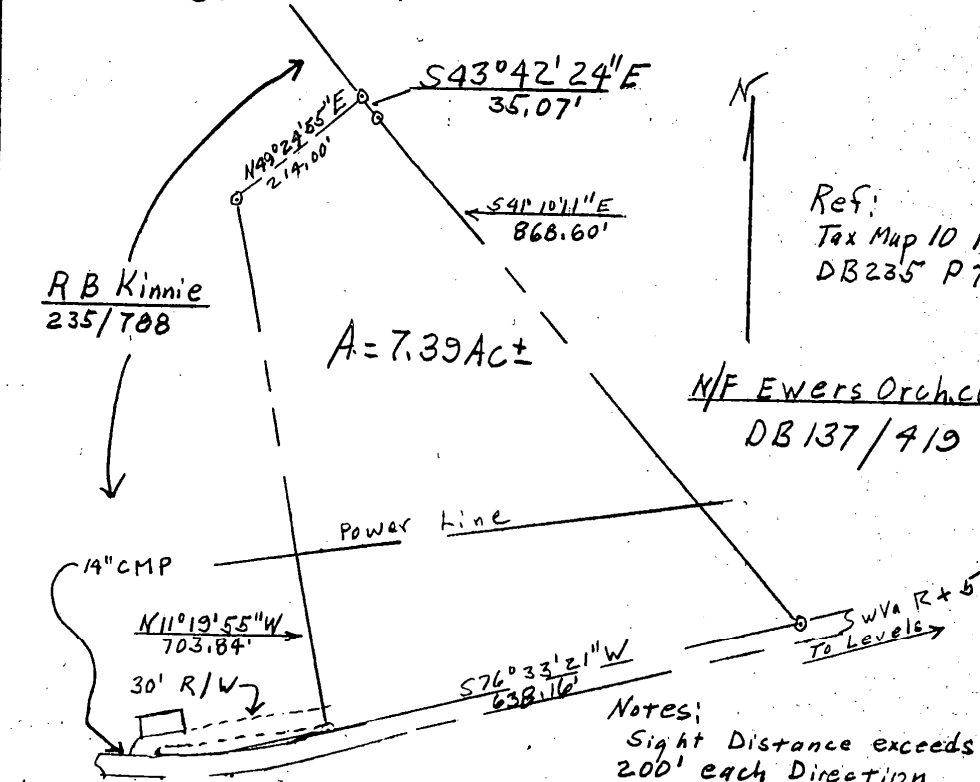 S43°42'24"E
35.07'
N49°24'55"E
214.00'
N
S41°10'11"E
868.60'
Ref:
Tax Map 10
DB235 P
R B Kinnie
235/788
A = 7.39 Ac ±
N/F Ewers Orch.
DB 137 / 419
Power Line
14" CMP
N11°19'55"W
703.84'
WVa Rt 5
To Levels
S76°33'21"W
638.16'
30' R/W
Notes:
Sight Distance exceeds
200' each Direction